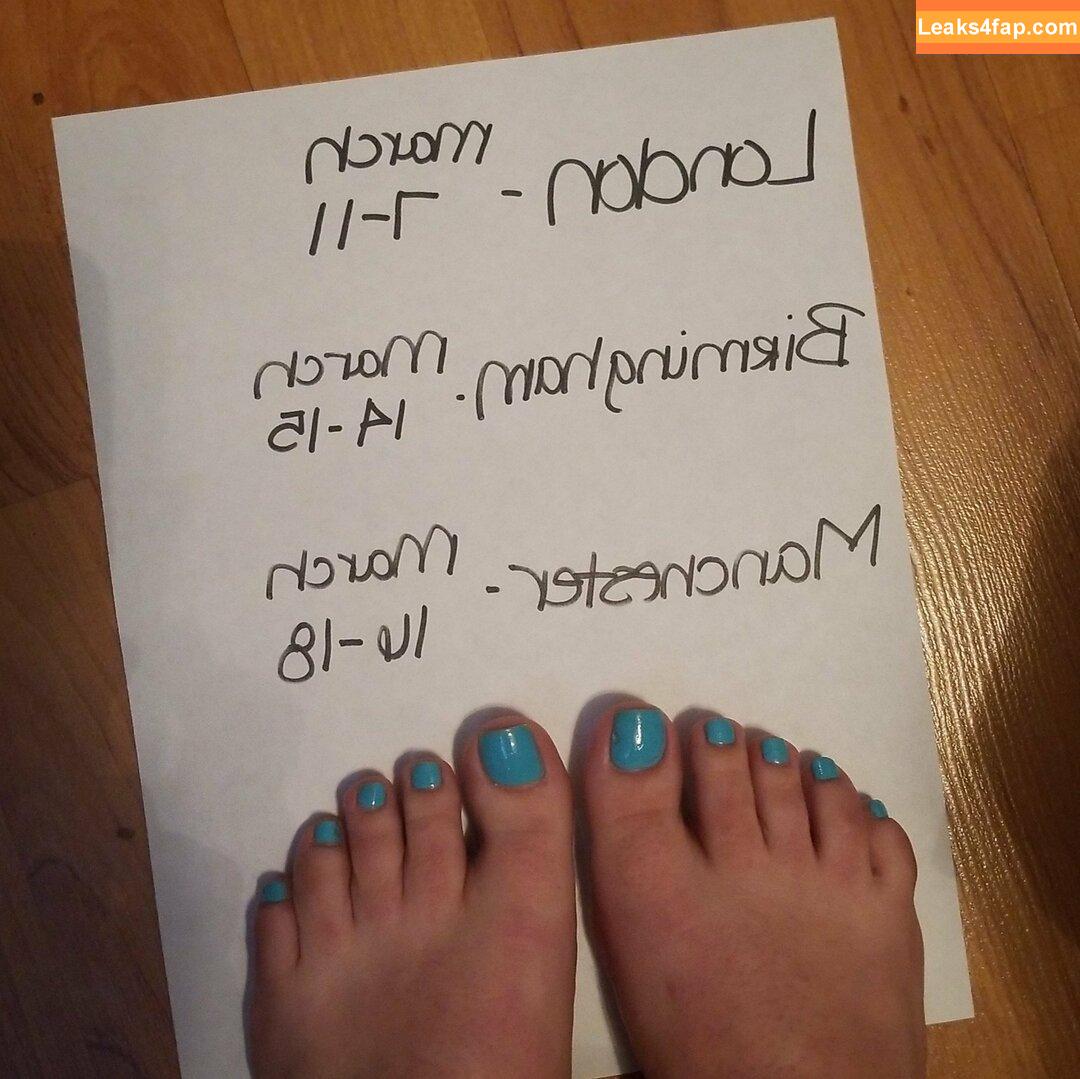 Leaks4fap.com
London - March
7-11
Birmingham - March
14-15
Manchester - March
16-18